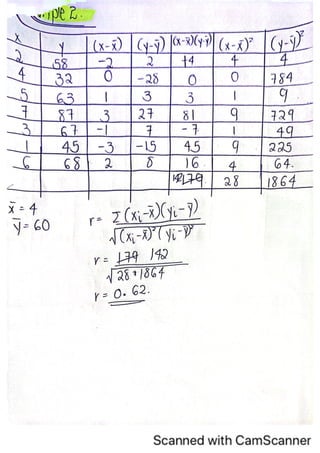 Type 2.
x y (x-x̄) (y-ȳ) (x-x̄)(y-ȳ) (x-x̄)² (y-ȳ)²
2 58 -2 2 +4 4 4
4 32 0 -28 0 0 784
5 63 1 3 3 1 9
7 87 3 27 81 9 729
3 67 -1 7 -7 1 49
1 45 -3 -15 45 9 225
6 68 2 8 16 4 64.
28 1864
x̄ = 4
ȳ = 60
r = Σ(xi-x̄)(yi-ȳ)
√(xi-x̄)²(yi-ȳ)²
r = 179 142
√28*1864
r = 0.62.
Scanned with CamScanner